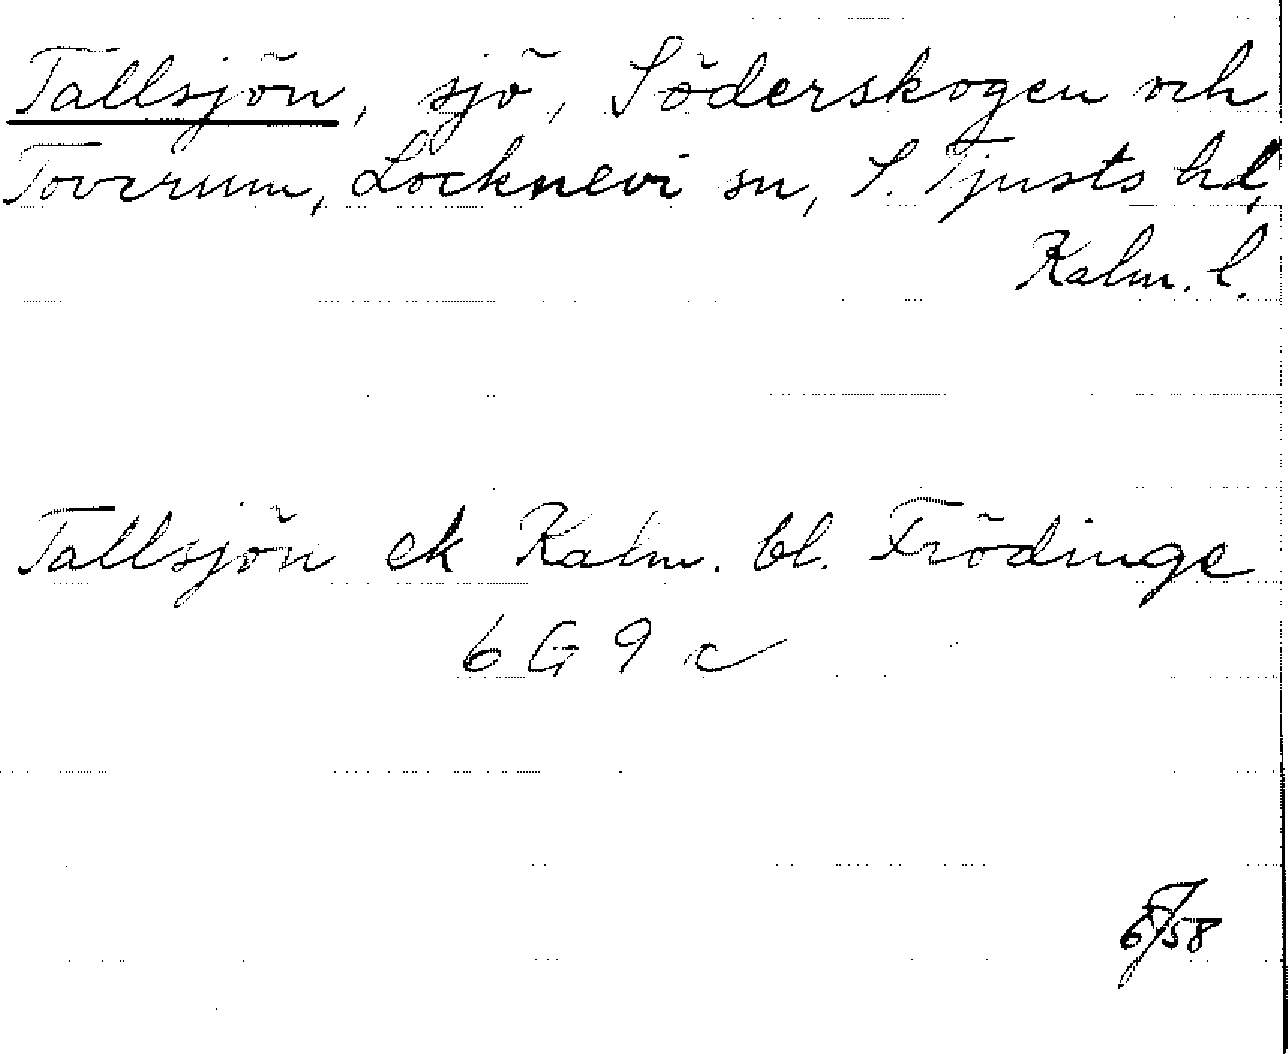 Tallsjön, sjö, Söderskogen och
Toverum, Locknevi sn, S. Tjusts hd,
Kalm. l.
Tallsjön ek Kalm. bl. Frödinge
6 G 9 c